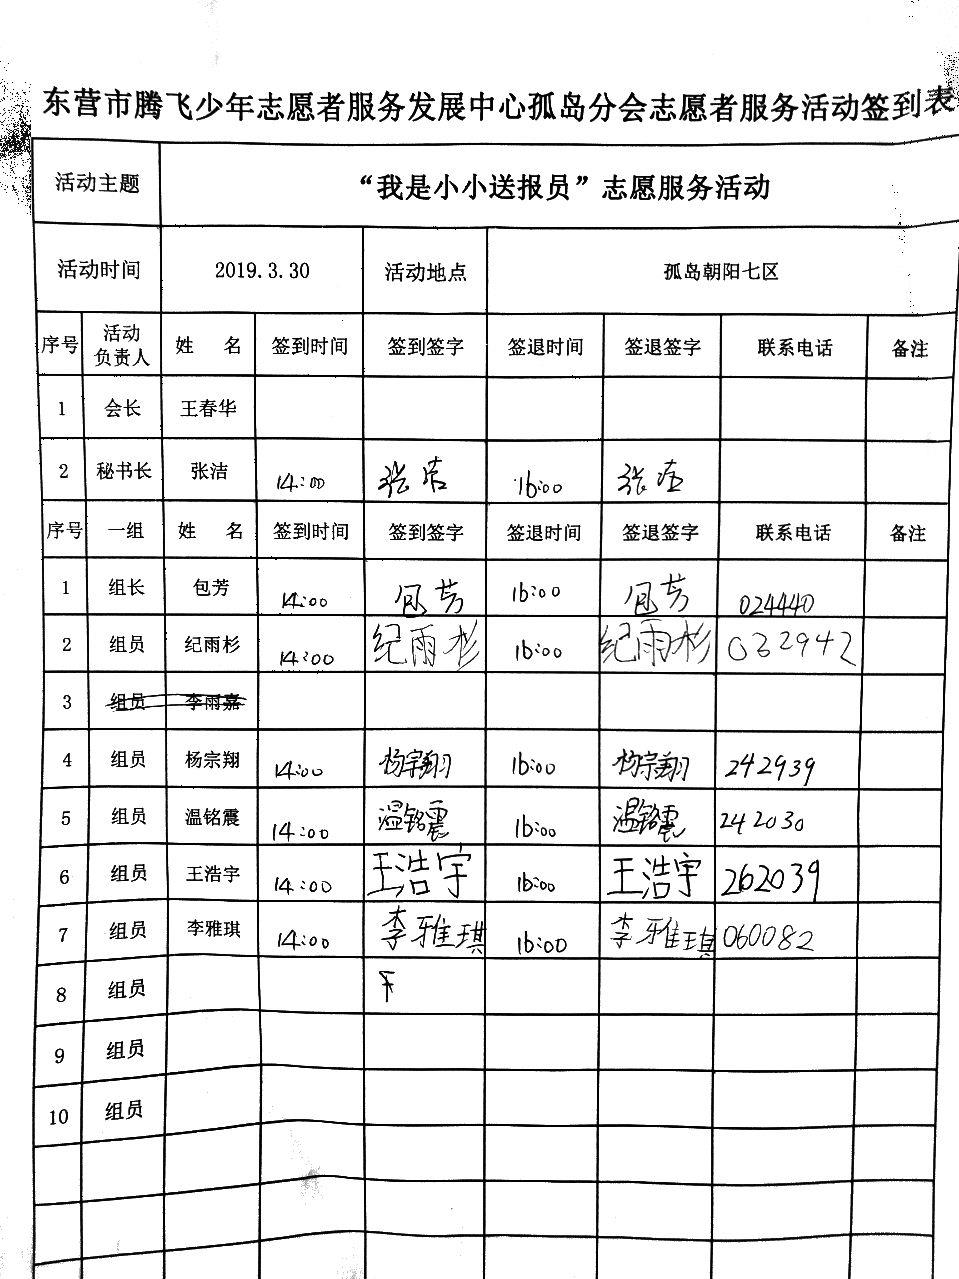 东营市腾飞少年志愿者服务发展中心孤岛分会志愿者服务活动签到表
活动主题 “我是小小送报员”志愿服务活动
活动时间 2019.3.30 活动地点 孤岛朝阳七区
序号 活动负责人 姓 名 签到时间 签到签字 签退时间 签退签字 联系电话 备注
1 会长 王春华
2 秘书长 张洁 14:00 张洁 16:00 张洁
序号 一组 姓 名 签到时间 签到签字 签退时间 签退签字 联系电话 备注
1 组长 包芳 14:00 包芳 16:00 包芳 024440
2 组员 纪雨杉 14:00 纪雨杉 16:00 纪雨杉 032942
3 组员 李雨嘉
4 组员 杨宗翔 14:00 杨宗翔 16:00 杨宗翔 242939
5 组员 温铭震 14:00 温铭震 16:00 温铭震 242030
6 组员 王浩宇 14:00 王浩宇 16:00 王浩宇 262039
7 组员 李雅琪 14:00 李雅琪 16:00 李雅琪 060082
8 组员
9 组员
10 组员